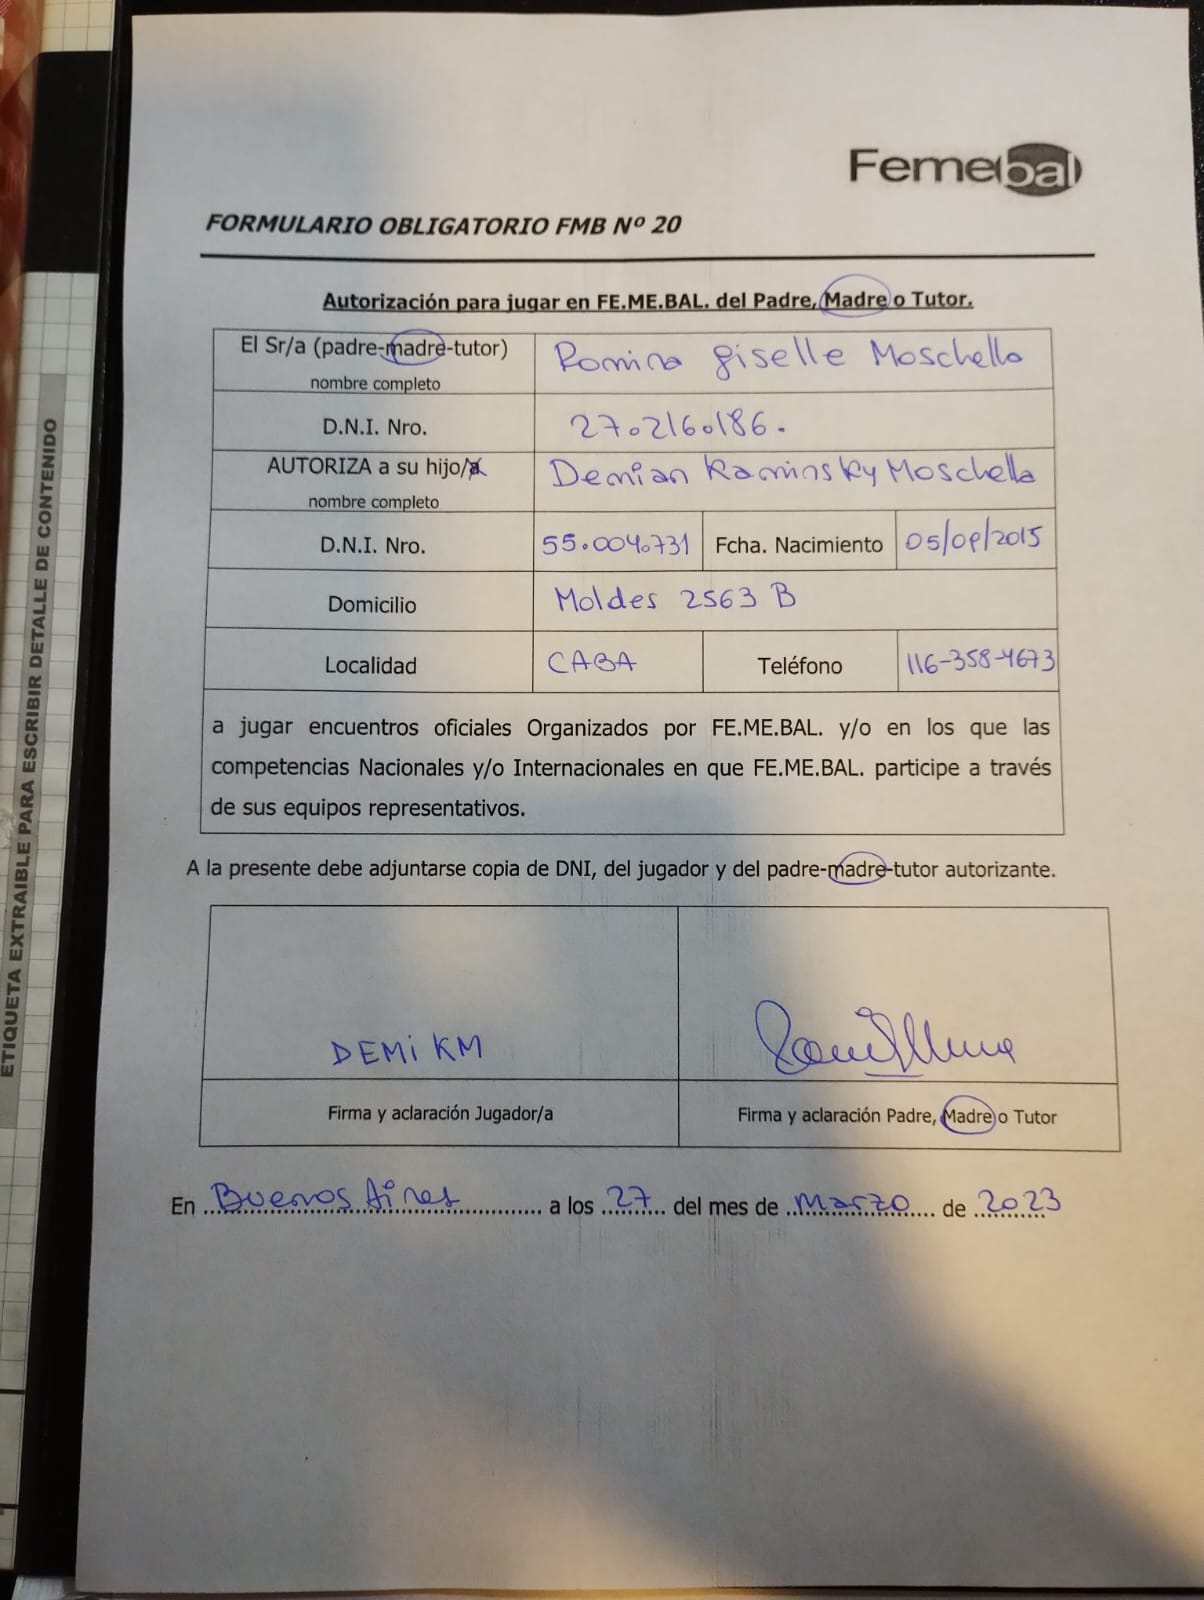 Femebal
FORMULARIO OBLIGATORIO FMB Nº 20
Autorización para jugar en FE.ME.BAL. del Padre, Madre o Tutor.
El Sr/a (padre-madre-tutor)
nombre completo
Romina Giselle Moschella
D.N.I. Nro.
27.216.186.
AUTORIZA a su hijo/a
nombre completo
Demian Kaminsky Moschella
D.N.I. Nro.
55.004.731
Fcha. Nacimiento
05/09/2015
Domicilio
Moldes 2563 B
Localidad
CABA
Teléfono
116-358-4673
a jugar encuentros oficiales Organizados por FE.ME.BAL. y/o en los que las
competencias Nacionales y/o Internacionales en que FE.ME.BAL. participe a través
de sus equipos representativos.
A la presente debe adjuntarse copia de DNI, del jugador y del padre-madre-tutor autorizante.
DEMi KM
Firma y aclaración Jugador/a
Firma y aclaración Padre, Madre o Tutor
En Buenos Aires a los 27 del mes de Marzo de 2023
ETIQUETA EXTRAIBLE PARA ESCRIBIR DETALLE DE CONTENIDO